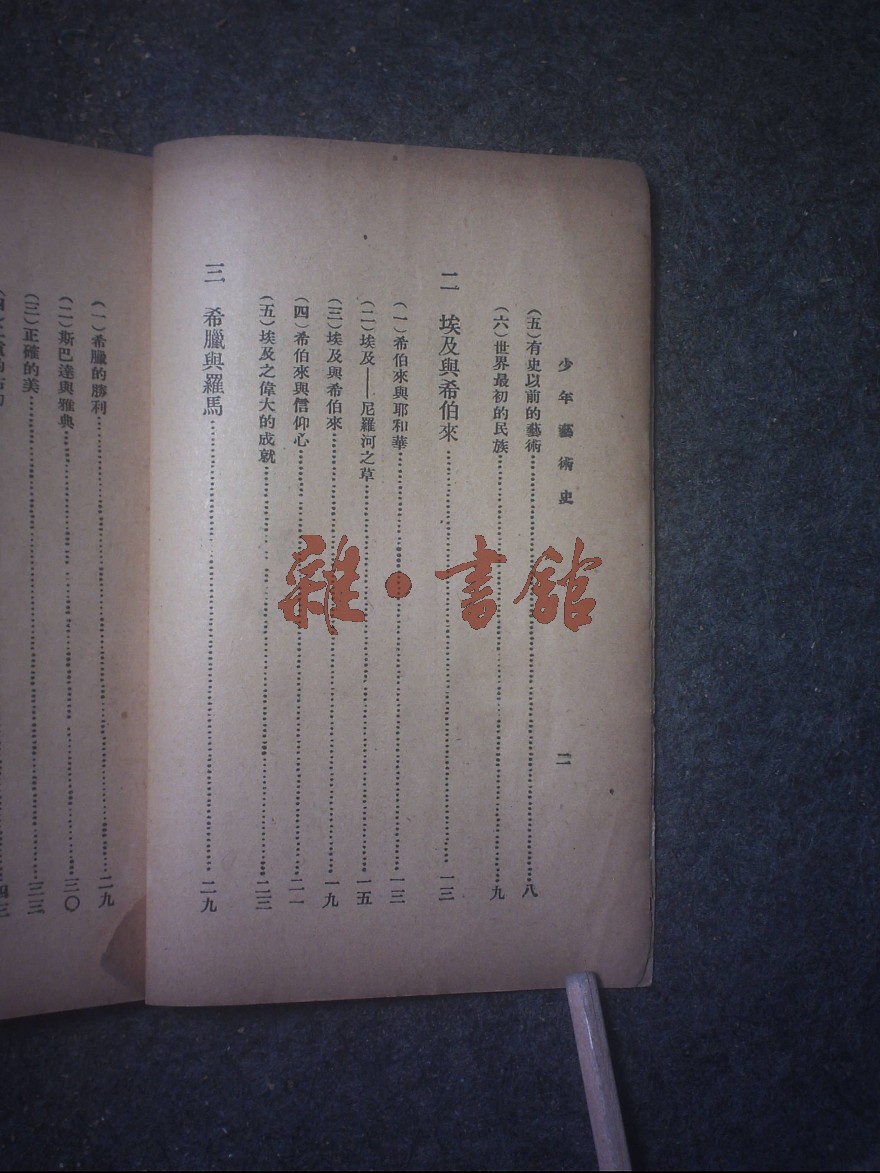 少年藝術史
二
（五）有史以前的藝術……八
（六）世界最初的民族……九
二 埃及與希伯來……一三
（一）希伯來與耶和華……一三
（二）埃及——尼羅河之草……一五
（三）埃及與希伯來……一九
（四）希伯來與信仰心……二一
（五）埃及之偉大的成就……二三
三 希臘與羅馬……二九
（一）希臘的勝利……二九
（二）斯巴達與雅典……三〇
（三）正確的美……三三
雜·書館